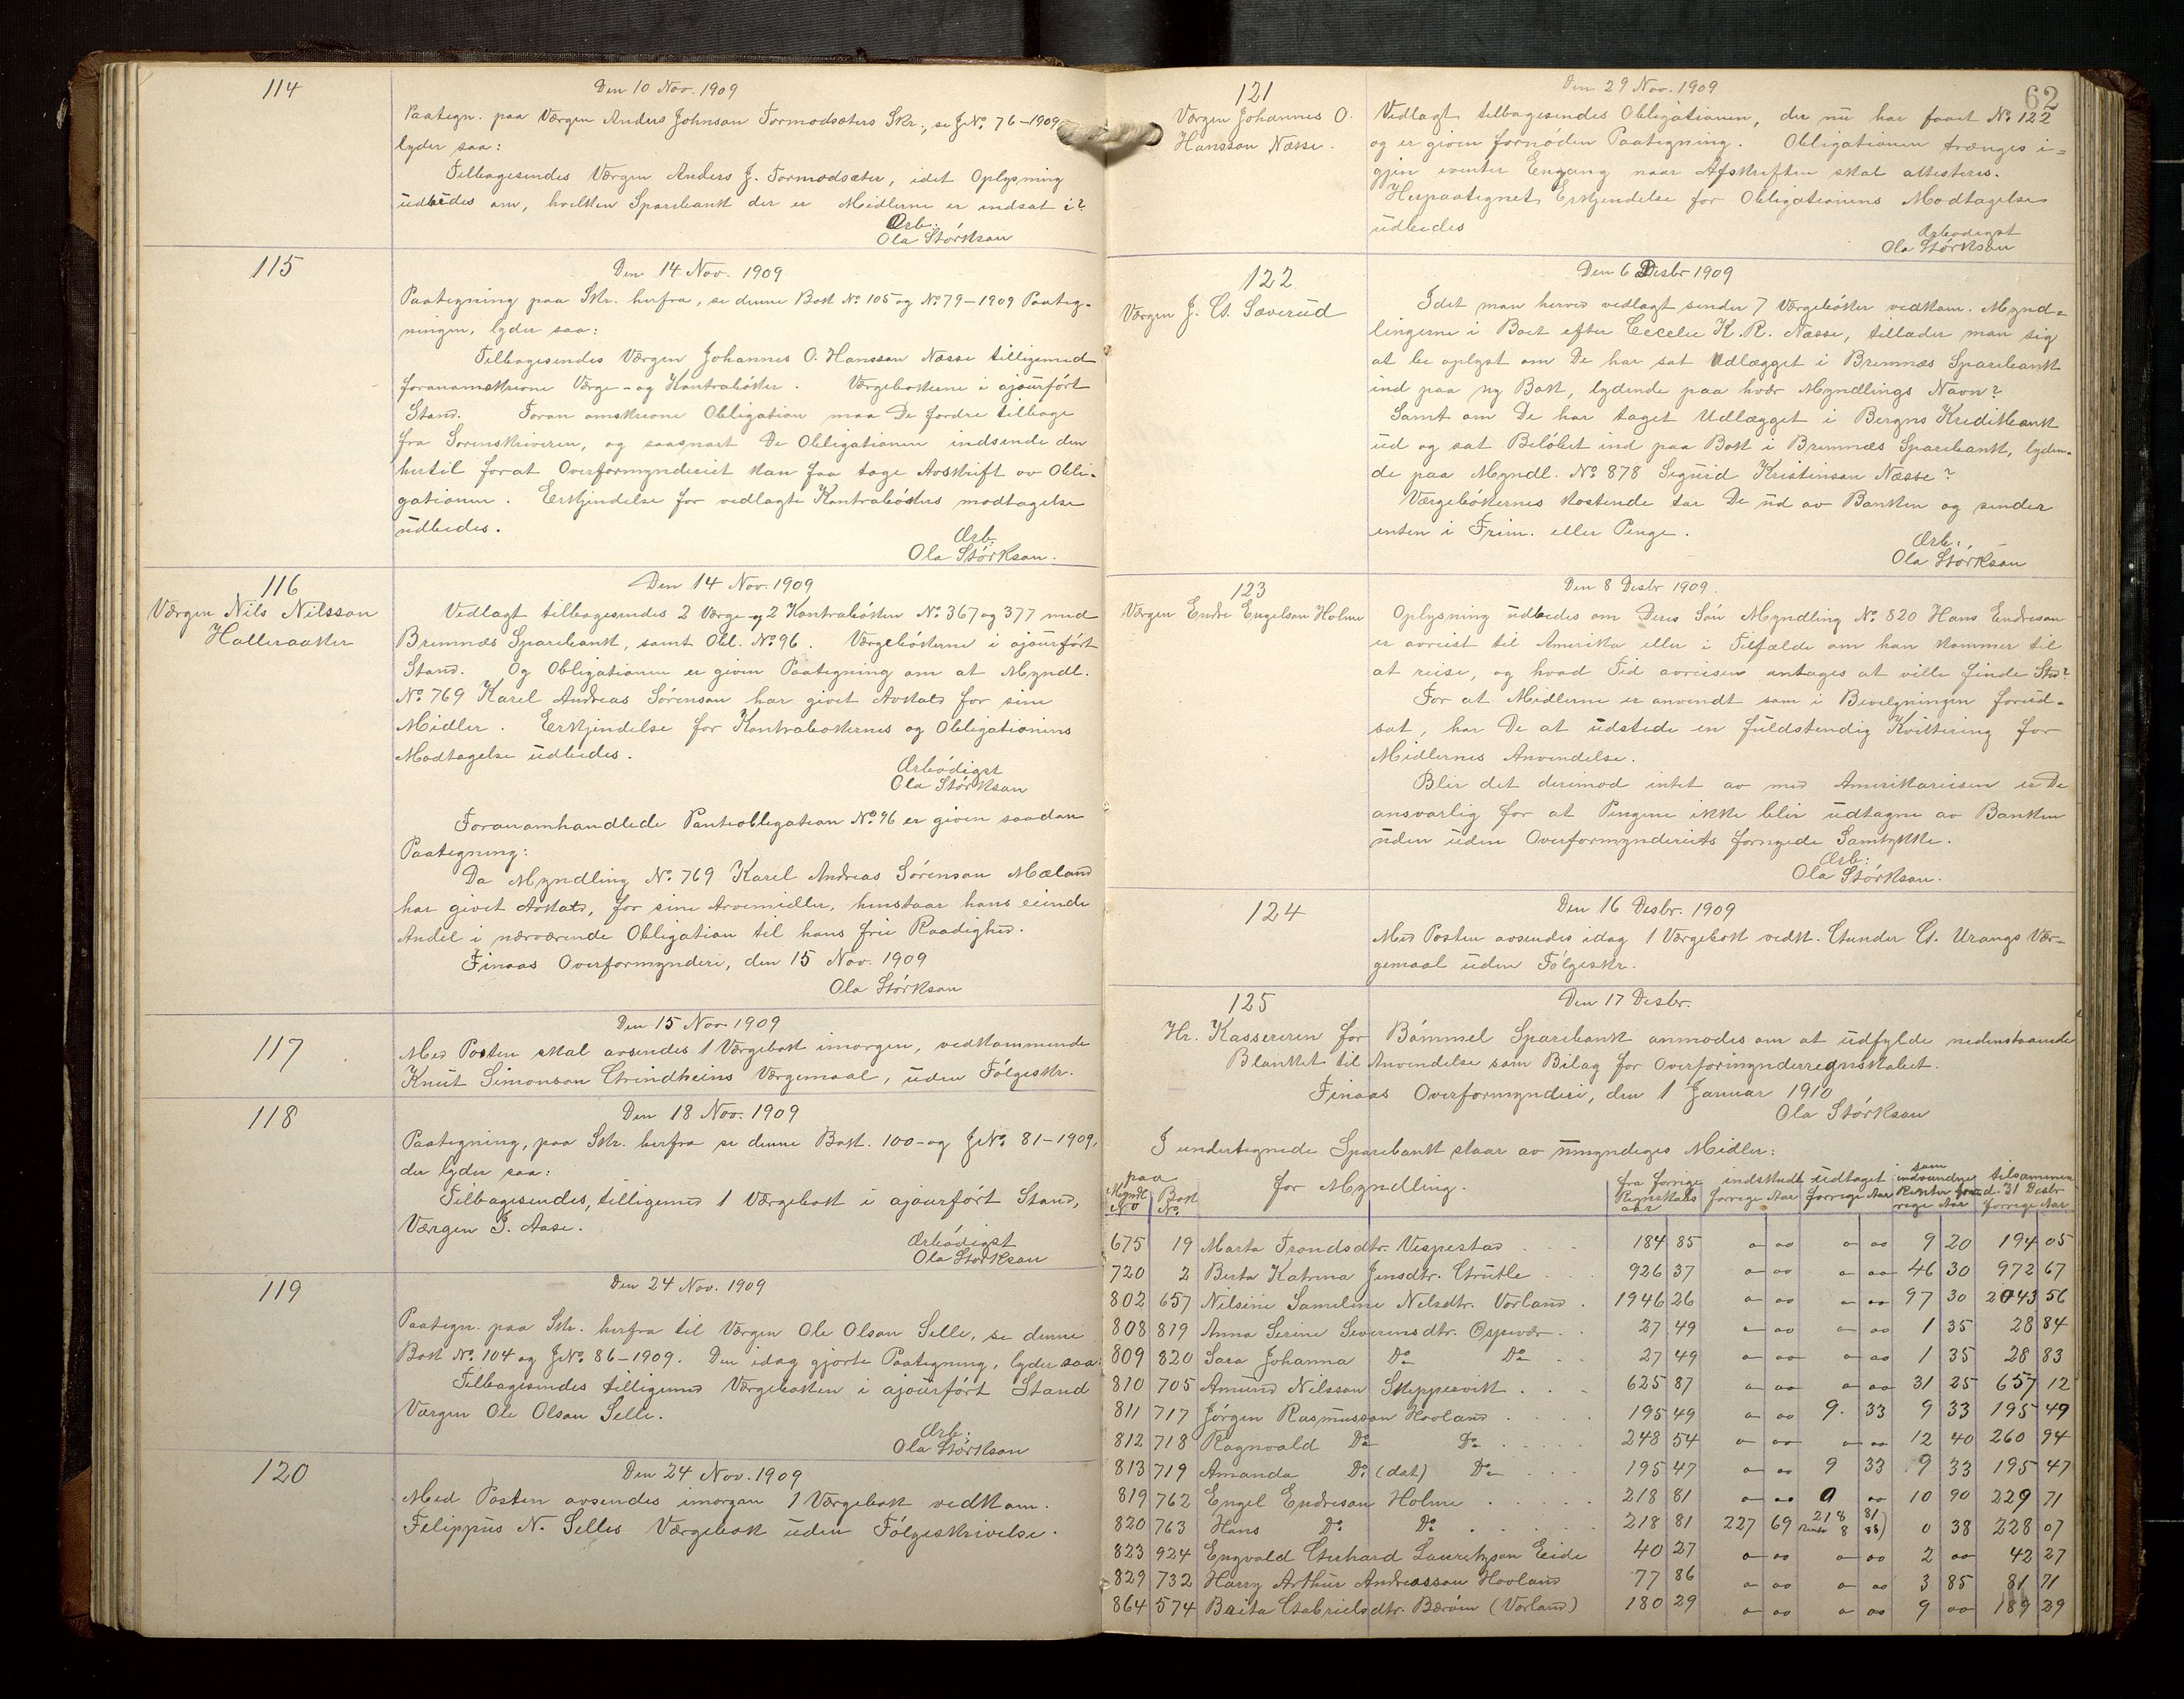 114
Den 10 Nov. 1909
Paategn. paa Værgen Anders Johnson Tormodsæters Skr., se JNo. 76-1909
lyder saa:
Tilbagesendes Værgen Anders J. Tormodsæter, idet Oplysning
udbedes om, hvilken Sparebank der er Midlerne er indsat i?
Ærb.
Ola Størkson
115
Den 14 Nov. 1909
Paategning paa Skr. herfra, se denne Bok No 105 og No 79-1909 Paateg-
ningen, lyder saa:
Tilbagesendes Værgen Johannes O. Hansson Næsse tilligemed
foranomskrevne Værge- og Kontrabøker. Værgebøkerne i ajourført
Stand. Foran omskrevne Obligation maa De fordre tilbage
fra Sorenskriveren, og saasnart De Obligationen indsende den
hertil forat Overformynderiet kan faa tage Avskrift av Obli-
gationen. Erkjendelse for vedlagte Kontrabøkers modtagelse
udbedes.
Ærb.
Ola Størkson.
116
Værgen Nils Nilsson
Halleraaker
Den 14 Nov. 1909
Vedlagt tilbagesendes 2 Værge og 2 Kontrabøker No 367 og 377 med
Bremnæs Sparebank, samt Obl. No 96. Værgebøkerne i ajourført
Stand. Og Obligationen er given Paategning om at Myndl.
No 769 Karel Andreas Sørenson har givet Avkald for sine
Midler. Erkjendelse for Kontrabokernes og Obligationens
Modtagelse udbedes.
Ærbødigst
Ola Størkson
Foranomhandlede Panteobligation No. 96 er given saadan
Paategning:
Da Myndling No. 769 Karel Andreas Sørenson Mæland
har givet Avkald, for sine Arvemidler, henstaar hans eiende
Andel i nærværende Obligation til hans frie Raadighed.
Finaas Overformynderi, den 15 Nov. 1909
Ola Størkson
117
Den 15 Nov 1909
Med Posten skal avsendes 1 Værgebok imorgen, vedkommende
Knut Simonson Grindheins Værgemaal, uden Følgeskr.
118
Den 18 Nov. 1909
Paategning, paa Skr. herfra se denne Bok. 100- og JNo. 81-1909,
der lyder saa:
Tilbagesendes, tilligemed 1 Værgebok i ajourført Stand,
Værgen J. Aase.
Ærbødigst
Ola Størkson
119
Den 24 Nov. 1909
Paategn. paa Skr. herfra til Værgen Ole Olson Selle, se denne
Bok No. 104 og JNo. 86-1909. Den idag gjorte Paategning, lyder saa:
Tilbagesendes tilligemed Værgeboken i ajourført Stand
Værgen Ole Olson Selle.
Ærb.
Ola Størkson
120
Den 24 Nov. 1909
Med Posten avsendes imorgan 1 Værgebok vedkom.
Filippus N. Selles Værgebok uden Følgeskrivelse.
62
121
Værgen Johannes O.
Hansson Næsse.
Den 29 Nov. 1909
Vedlagt tilbagesendes Obligationen, der nu har faaet No. 122
og er given fornøden Paategning. Obligationen trænges i=
gjen Engang naar Afskriften skal attesteres.
Herpaategnet Erkjendelse for Obligationens Modtagelse
udbedes
Ærbødigst
Ola Størkson
122.
Værgen J. G. Sæverud
Den 6 Desbr 1909
Idet man herved vedlagt sender 7 Værgebøker vedkom. Mynd=
lingerne i Boet efter Cecelie K. R. Næsse, tillader man sig
at be oplyst om De har sat Udlægget i Bremnæs Sparebank
ind paa ny Bok, lydende paa hver Myndlings Navn?
Samt om De har taget Udlægget i Bergens Kreditbank
ud og sat Beløbet ind paa Bok i Bremnæs Sparebank, lyden-
de paa Myndl. No. 878 Sigurd Kristenson Næsse?
Værgebøkernes kostende tar De ud av Banken og sender
enten i Frim. eller Penge.
Ærb.
Ola Størkson
123
Værgen Endre Engelson Holme
Den 8 Desbr 1909.
Oplysning udbedes om Deres Søn Myndling No. 820 Hans Endreson
er avreist til Amerika eller i Tilfælde om han kommer til
at reise, og hvad Tid avreisen antages at ville finde Sted?
For at Midlerne er anvendt som i Bevilgningen forud-
sat, har De at udstede en fuldstendig Kvittering for
Midlernes Anvendelse.
Blir det derimod intet av med Amerikareisen er De
ansvarlig for at Pengene ikke blir udtagne av Banken
uden uden Overformynderiets fornyede Samtykke.
Ærb:
Ola Størkson.
124
Den 16 Desbr. 1909
Med Posten avsendes idag 1 Værgebok vedk. Gunder G. Urangs Vær-
gemaal uden Følgeskr.
125
Den 17 Desbr.
Hr. Kassereren for Bømmel Sparebank anmodes om at udfylde nedenstaaende
Blanket til Anvendelse som Bilag for Overformynderregnskabet.
Finaas Overformynderi, den 1 Januar 1910
Ola Størkson
I undertegnede Sparebank staar av umyndiges Midler:
paa
Myndl No Bok No. for Myndling. fra forrige Regnskabsaar indskudt forrige Aar udtaget forrige Aar som indvundne Renter forrige Aar tilsammen d. 31 Desbr forrige Aar
675 19 Marta Trondsdtr. Vespestad 184 85 o oo o oo 9 20 194 05
720 2 Berta Katrina Jensdtr. Grutle 926 37 o oo o oo 46 30 972 67
802 657 Nilsine Sameline Nelsdtr. Vorland 1946 26 o oo o oo 97 30 2043 56
808 819 Anna Serine Severinsdtr. Espevær 27 49 o oo o oo 1 35 28 84
809 820 Sara Johanna Do Do 27 49 o oo o oo 1 35 28 83
810 705 Amund Nilsson Skippervik 625 87 o oo o oo 31 25 657 12
811 717 Jørgen Rasmusson Hovland 195 49 o oo 9. 33 9 33 195 49
812 718 Ragnvald Do Do 248 54 o oo o oo 12 40 260 94
813 719 Amanda Do (dat) Do 195 47 o oo 9 33 9 33 195 47
819 762 Engel Endreson Holme 218 81 o oo 0 oo 10 90 229 71
820 763 Hans Do Do 218 81 227 69 218 81 Renter 8 88) 0 38 228 07
823 924 Engvald Gerhard Lauritzson Eide 40 27 o oo o oo 2 oo 42 27
829 732 Harry Arthur Andreasson Hovland 77 86 o oo o oo 3 85 81 71
864 574 Brita Gabrielsdtr. Bærøm (Vorland) 180 29 o oo o oo 9 oo 189 29